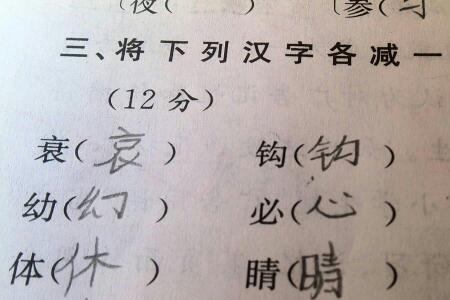 三、将下列汉字各减一
(12分)
衰(哀) 钩(钓)
幼(幻) 必(心)
体(休) 睛(晴)